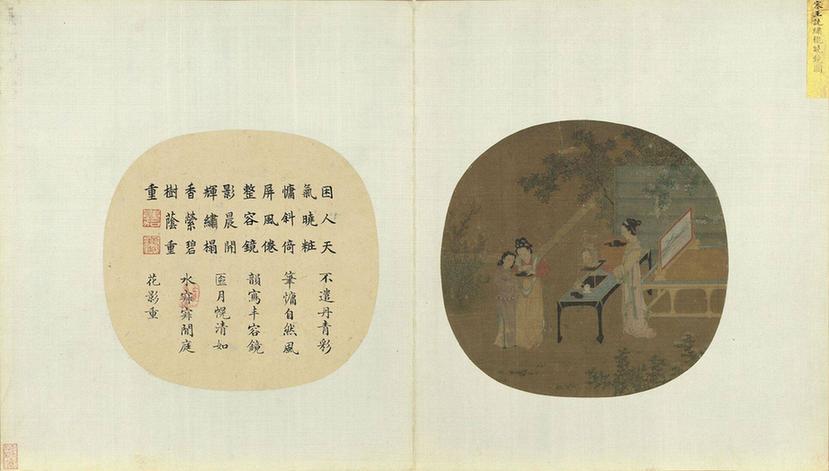 宋王詵繡櫳曉鏡圖
困人天
氣曉粧
慵斜倚
屏風倦
整容鏡
影晨開
輝繡榻
香縈碧
樹蔭重
重
不遣丹青彩
筆慵自然風
韻寫丰容鏡
匳月幌清如
水寂寂閒庭
花影重